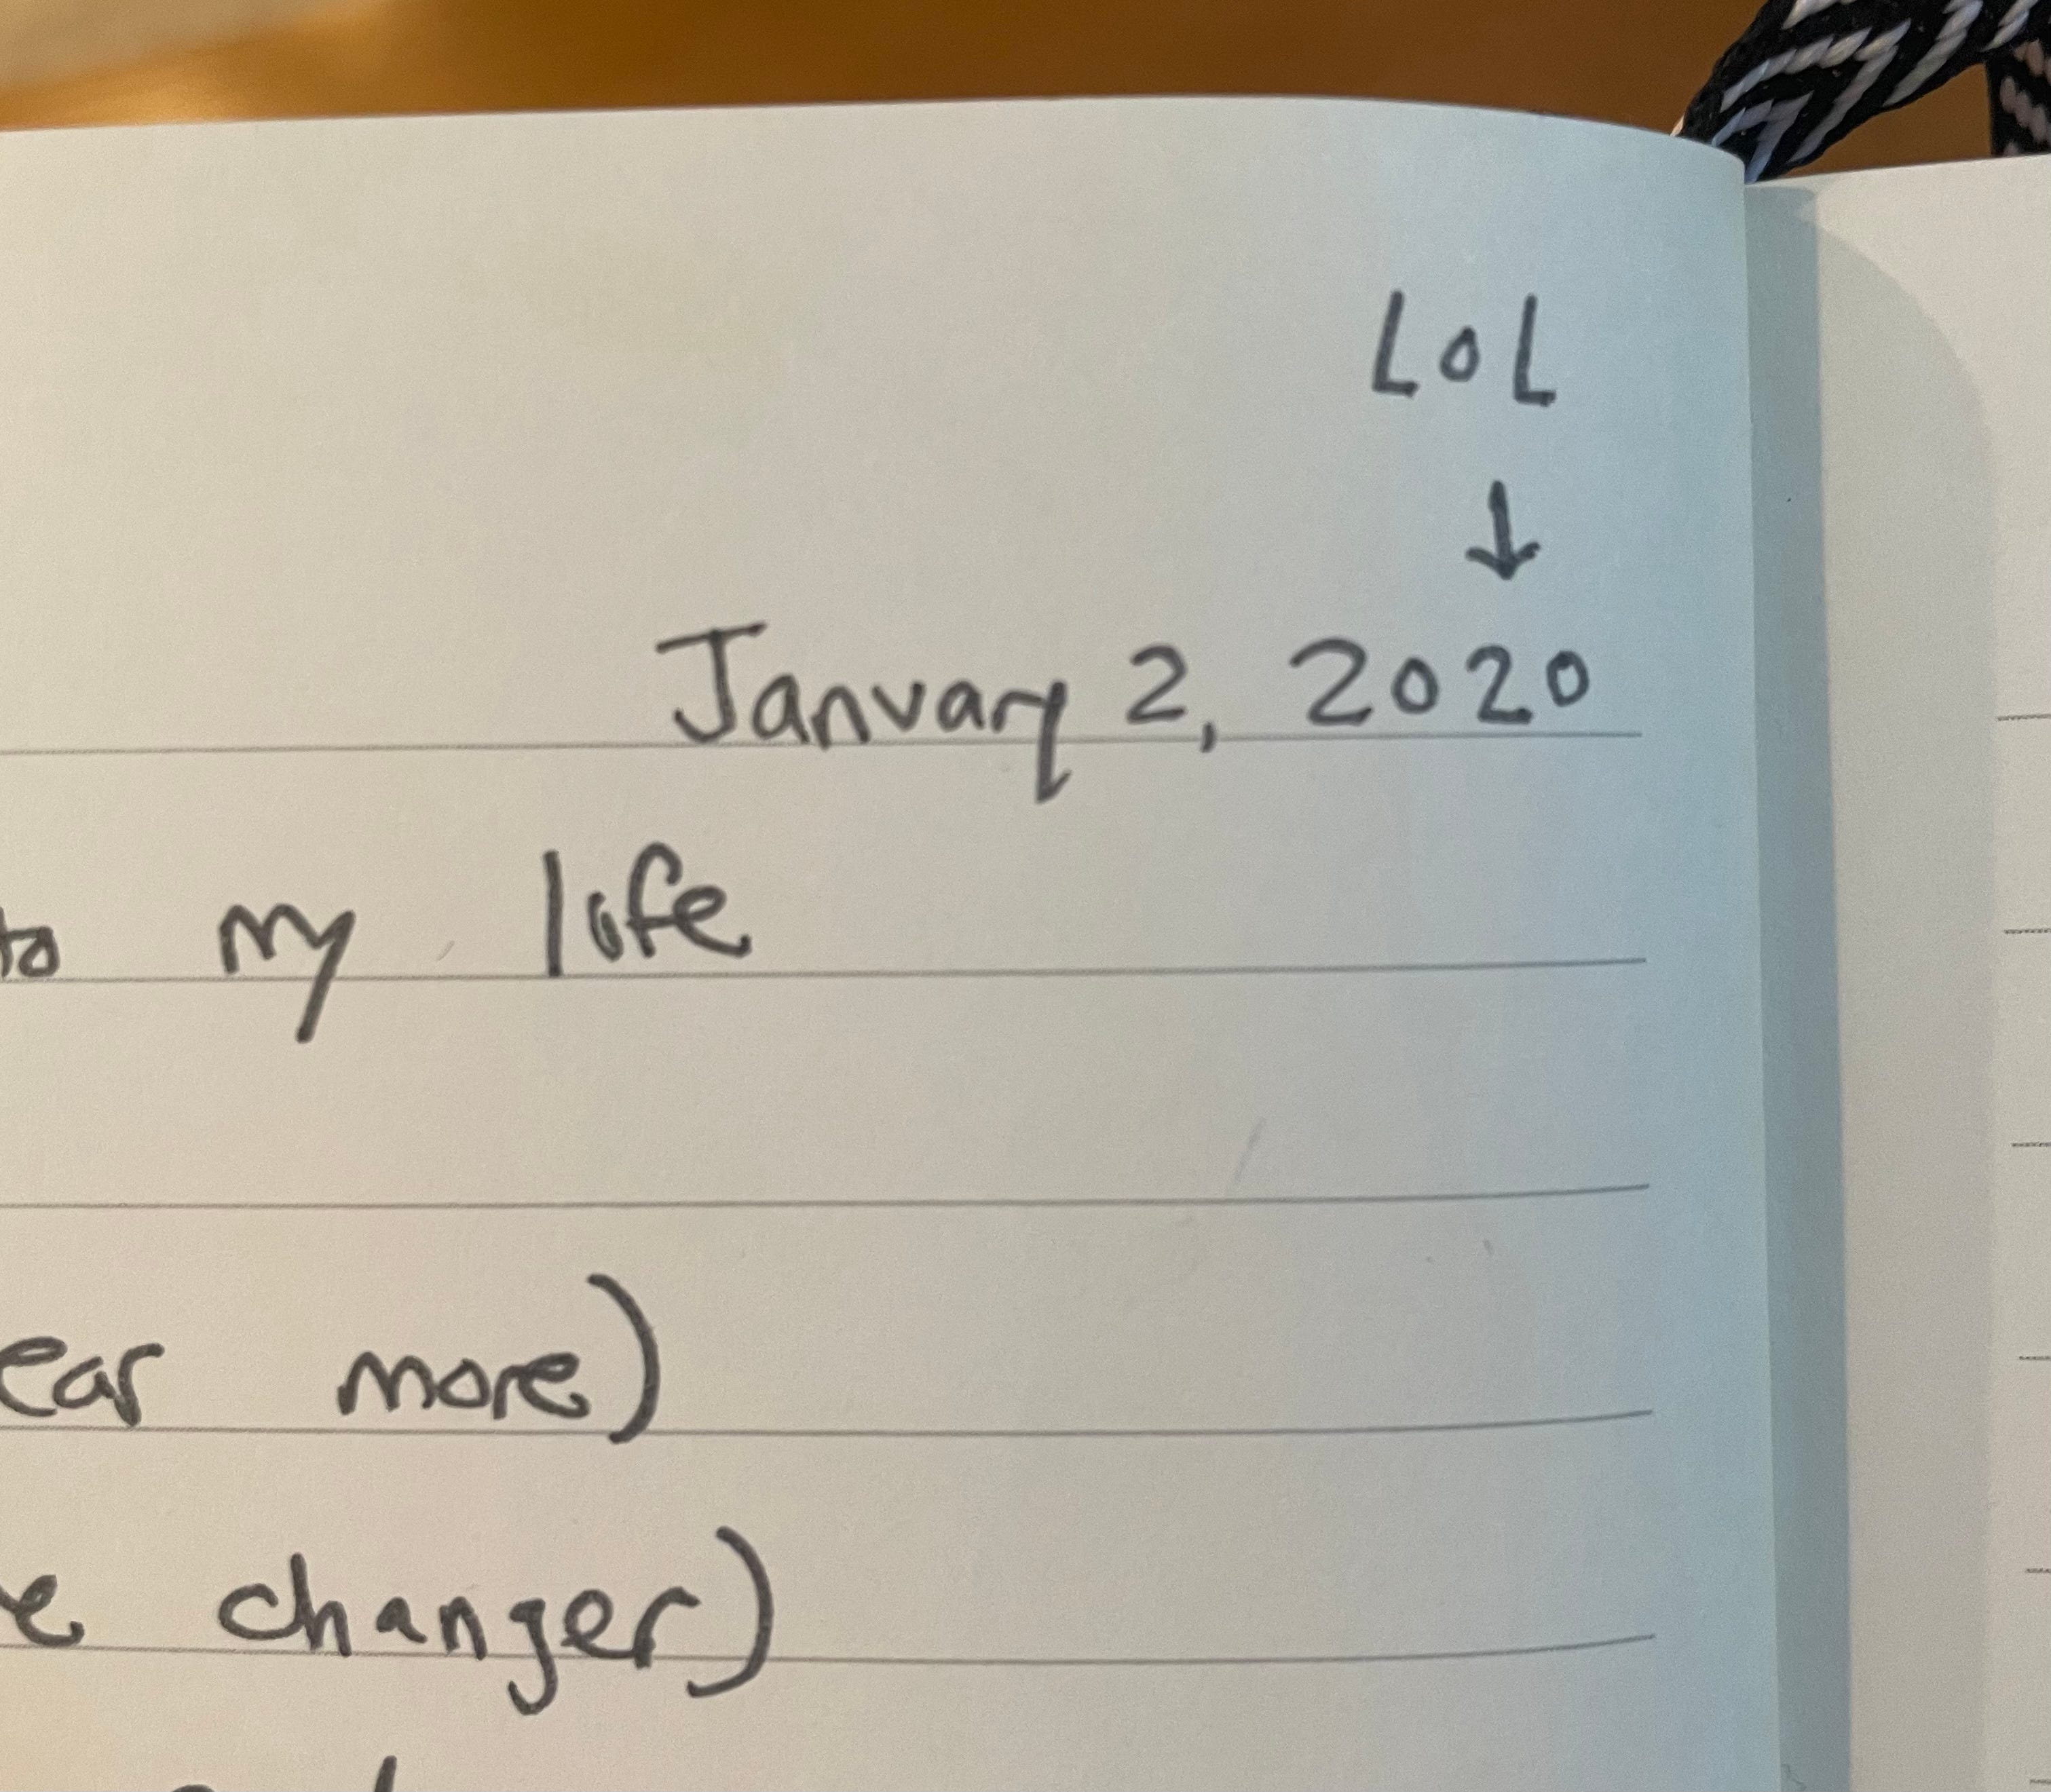 LOL
↓
January 2, 2020
to my life
ear more)
e changer)